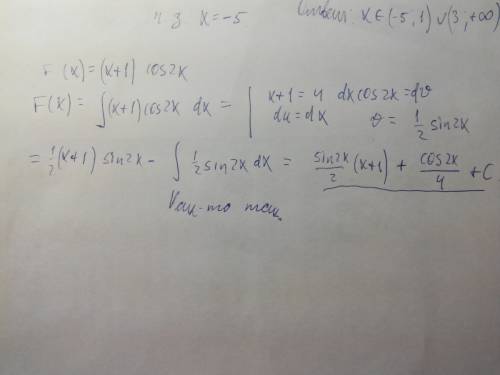 ч.з x=-5 Ответ: x∈(-5,1)∪(3;+∞)
F(x)=(x+1) cos2x
F(x)= ∫(x+1)cos2x dx = | x+1=u dxcos2x=dϑ
du=dx ϑ= 1/2 sin2x
= 1/2 (x+1) sin2x - ∫ 1/2 sin2x dx = sin2x/2 (x+1) + cos2x/4 + C
Как-то так